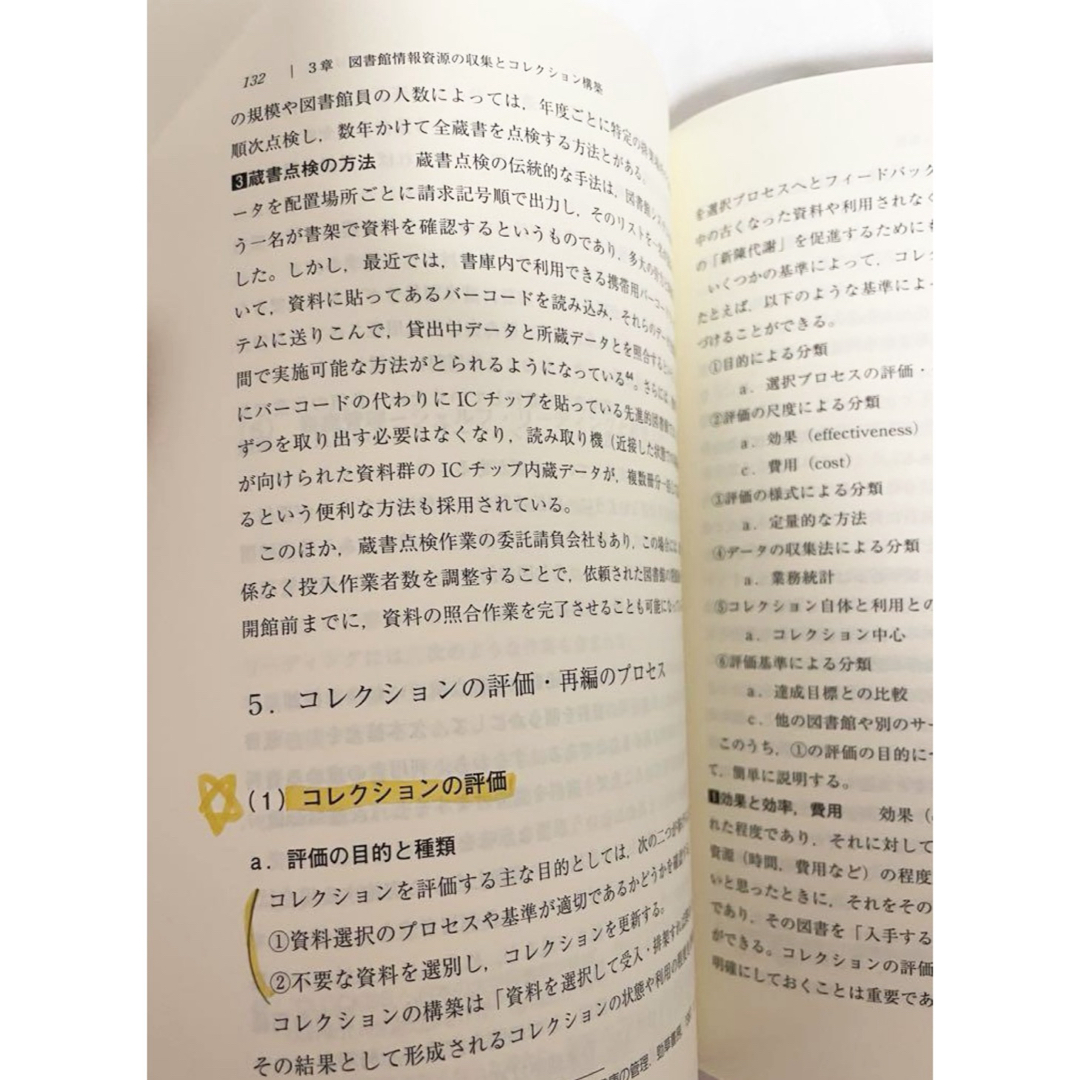 132 | 3章 図書館情報資源の収集とコレクション構築
の規模や図書館員の人数によっては，年度ごとに特定の
順次点検し，数年かけて全蔵書を点検する方法とがある．
3蔵書点検の方法 蔵書点検の伝統的な手法は，図書館システ
ータを配置場所ごとに請求記号順で出力し，そのリストを一
う一名が書架で資料を確認するというものであり，多大の
した。しかし，最近では，書庫内で利用できる携帯用バーコー
いて，資料に貼ってあるバーコードを読み込み，それらのデー
テムに送りこんで，貸出中データと所蔵データとを照合する
間で実施可能な方法がとられるようになっている44。さらには
にバーコードの代わりに ICチップを貼っている先進的図書館
ずつを取り出す必要はなくなり，読み取り機（近接した状態
が向けられた資料群の ICチップ内蔵データが，複数冊分一
るという便利な方法も採用されている。
このほか，蔵書点検作業の委託請負会社もあり，この場合
係なく投入作業者数を調整することで，依頼された図書館の
開館前までに，資料の照合作業を完了させることも可能になっ
5．コレクションの評価・再編のプロセス
(1) コレクションの評価
a．評価の目的と種類
コレクションを評価する主な目的としては，次の二つが
①資料選択のプロセスや基準が適切であるかどうかを確認
②不要な資料を選別し，コレクションを更新する。
コレクションの構築は「資料を選択して受入・排架すれば
その結果として形成されるコレクションの状態や利用の
の管理．勁草書房，
を選択プロセスへとフィードバック
中の古くなった資料や利用されなく
の「新陳代謝」を促進するためにも
いくつかの基準によって，コレ
たとえば，以下のような基準によ
づけることができる。
①目的による分類
a．選択プロセスの評価・
②評価の尺度による分類
a．効果（effectiveness）
c．費用（cost）
③評価の様式による分類
a．定量的な方法
④データの収集法による分類
a．業務統計
⑤コレクション自体と利用との
a．コレクション中心
⑥評価基準による分類
a．達成目標との比較
c．他の図書館や別のサー
このうち，①の評価の目的に
て，簡単に説明する。
1効果と効率，費用 効果（
れた程度であり，それに対して
資源（時間，費用など）の程度
いと思ったときに，それをその
であり，その図書を「入手する
ができる。コレクションの評価
明確にしておくことは重要であ